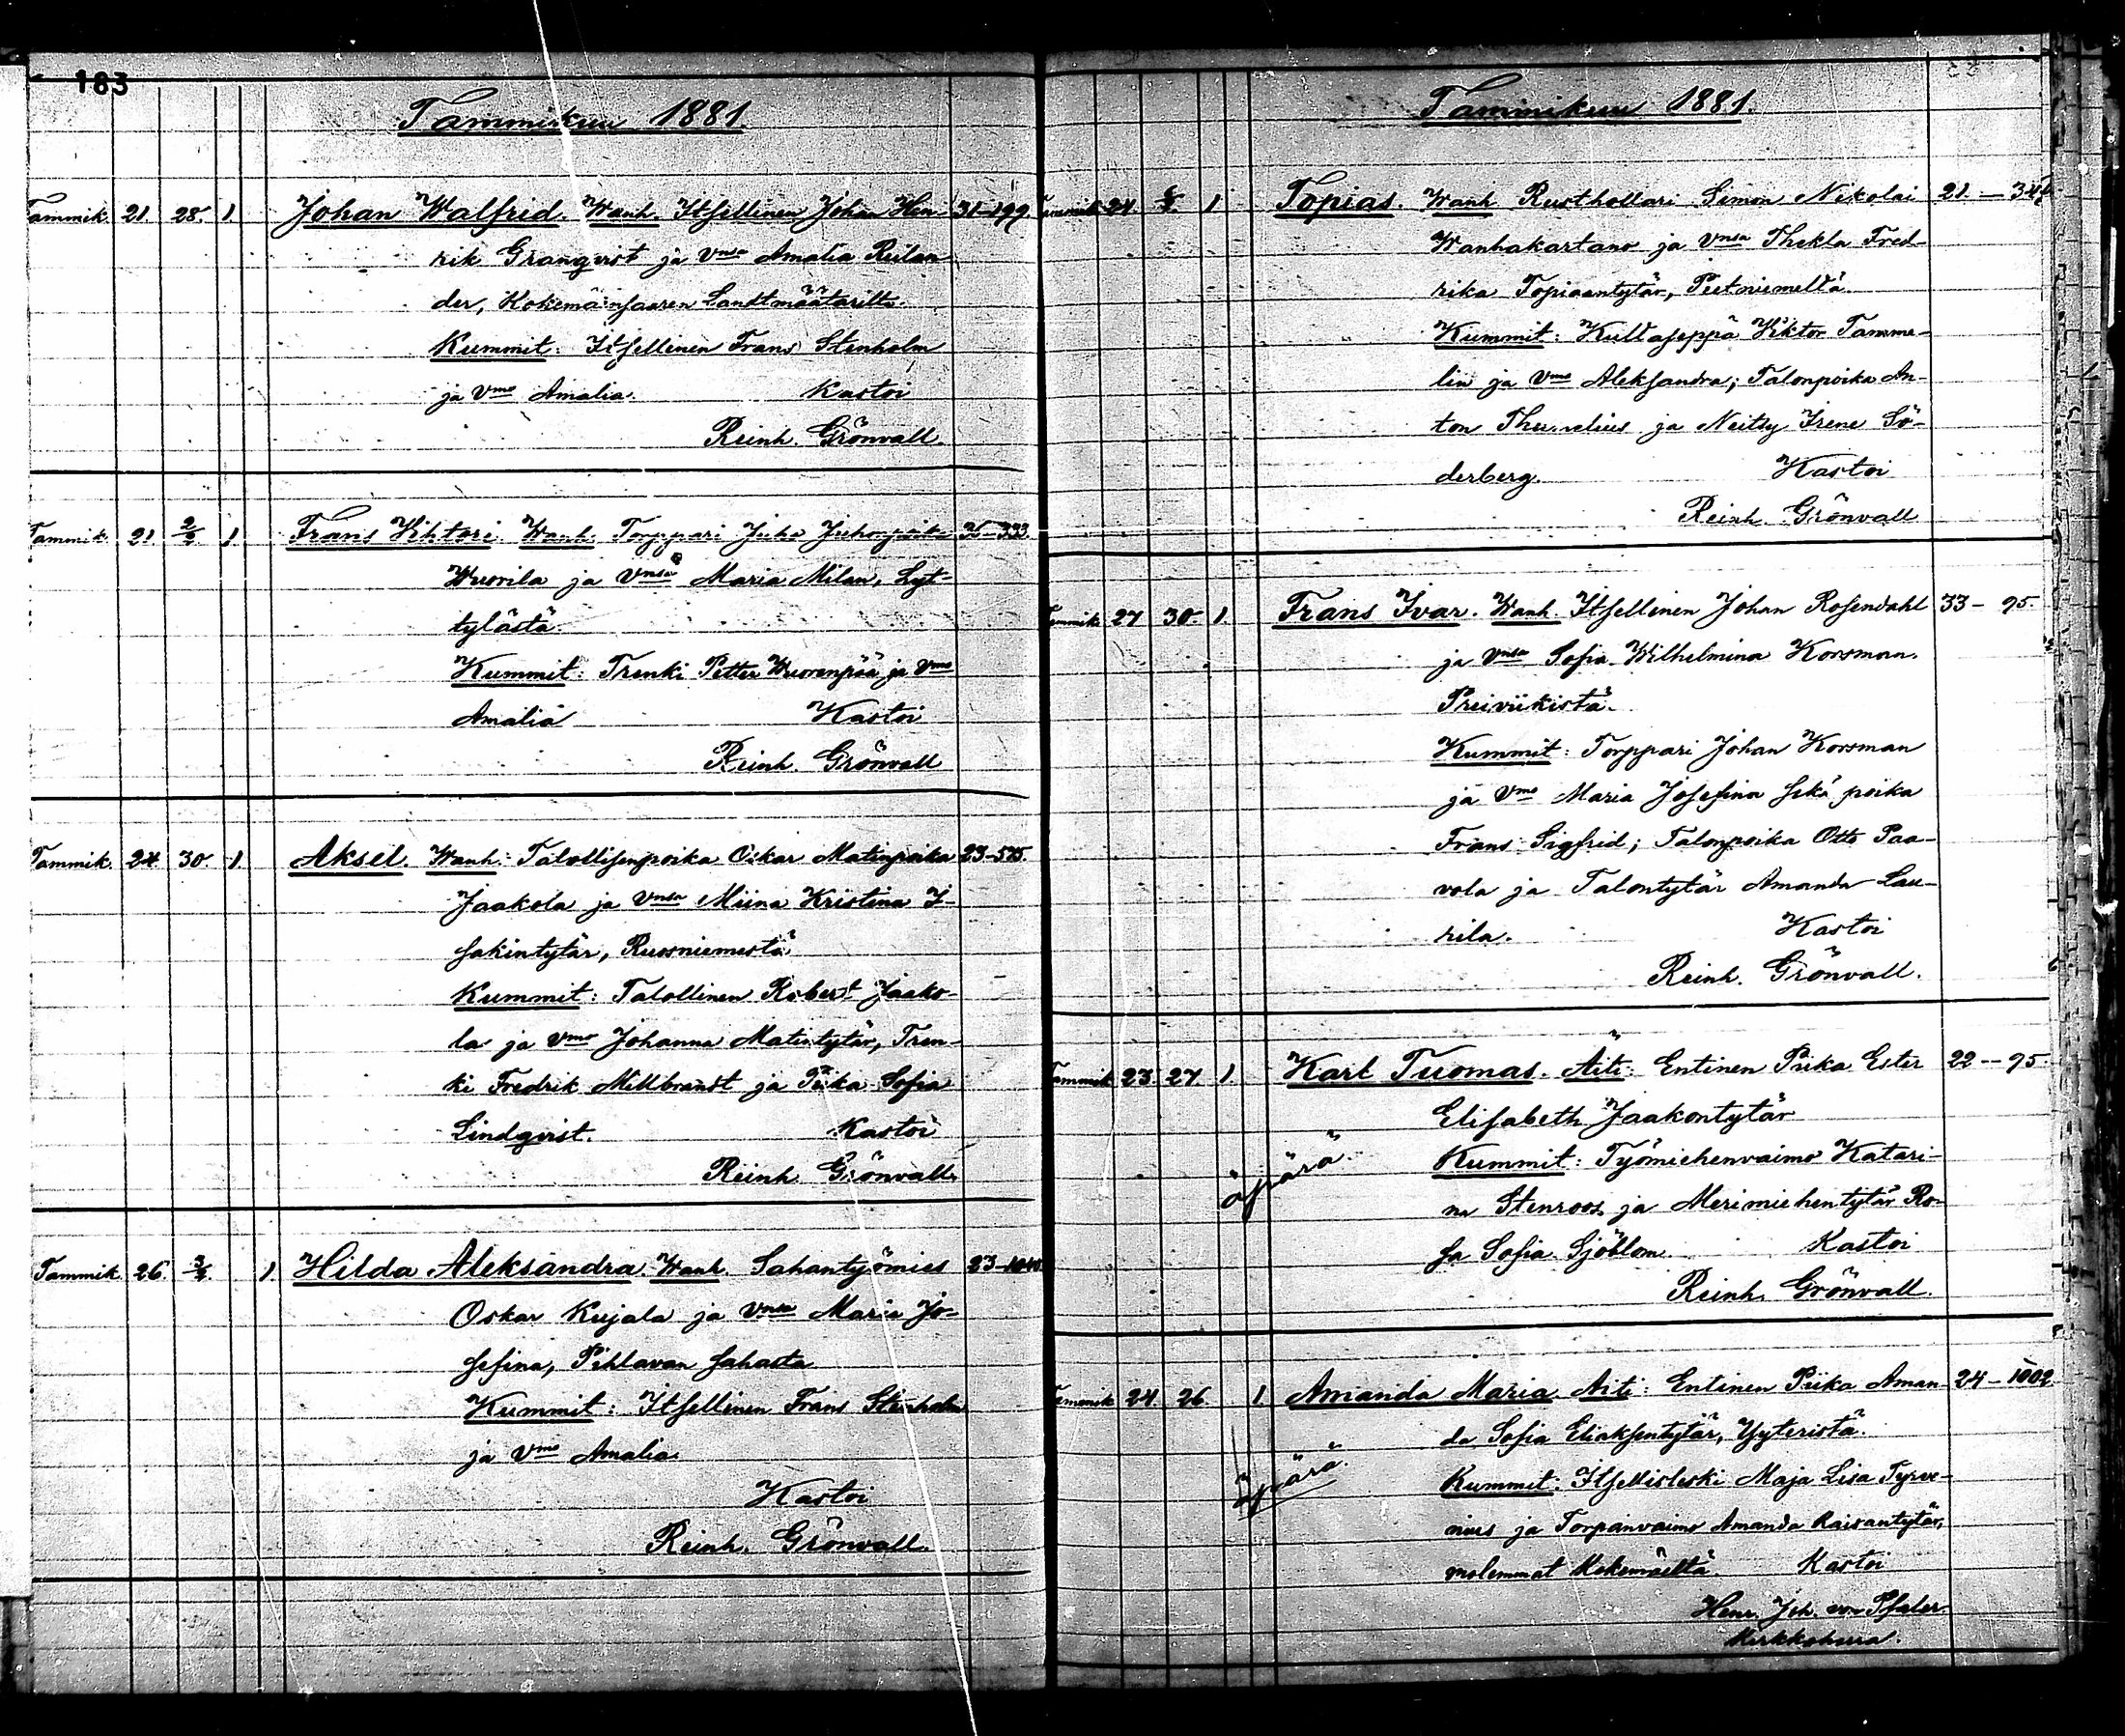 183
Tammikuu 1881
Tammik. 21. 28. 1 Johan Walfrid. Wanh. Itsellinen Johan Hen- 31-199
rik Granqvist ja Vmo Amalia Reilan
der, Kokemäinsaaren Landtmäätarilta.
Kummit: Itsellinen Frans Stenholm
ja Vmo Amalia. Kastoi
Reinh. Grönvall.
Tammik. 21 2/2 1 Frans Vihtori Wanh. Torppari Juha Juhonpoika 36-333.
Wuorila ja Vnsa Maria Milan, Lyt-
tylästä.
Kummit: Trenki Petter Wuorenpää ja Vmo
Amalia Kastoi
Reinh. Grönvall
Tammik. 24. 30. 1. Aksel. Wanh: Talollisenpoika Oskar Matinpoika 23-575.
Jaakola ja Vnsa Miina Kristina I-
sakintytär, Ruosniemestä
Kummit: Talollinen Robert Jaako-
la ja Vmo Johanna Matintytär, Tren-
ki Fredrik Millbrandt ja Piika Sofia
Lindqvist. Kastoi
Reinh. Grönvall.
Tammik. 26. 1 Hilda Aleksandra. Wanh. Sahantyömies 23-1040
Oskar Kujala ja Vnsa Maria Jo-
sefina, Pihlavan sahasta
Kummit: Itsellinen Frans Stenholm
ja Vmo Amalia.
Kastoi
Reinh. Grönvall.
Tammikuu 1881.
Tammik 24. 1 Topias. Wanh Rusthollari Simon Nikolai 21. - 347
Wanhakartano ja Vnsa Thekla Fred-
rika Topiaantytär, Peetniemeltä.
Kummit: Kultaseppä Viktor Tamme-
lin ja Vmo Aleksandra; Talonpoika An-
ton ja Neitsy Irene Sö-
derberg. Kastoi
Reinh. Grönvall
Tammik 27 30. 1. Frans Ivar. Wanh. Itsellinen Johan Rosendahl 33 - 95.
ja Vnsa Sofia Wilhelmina Korsman.
Preiviikistä.
Kummit: Torppari Johan Korsman
ja Vmo Maria Josefina sekä poika
Frans Sigfrid; Talonpoika Otto Paa-
vola ja Talontytär Amanda Lau-
rila. Kastoi
Reinh. Grönvall.
Tammik 23. 27. 1 Karl Tuomas. Äiti: Entinen Piika Ester 22 - 95.
Elisabeth Jaakontytär
äpärä. Kummit: Työmiehenvaimo Katari-
na Stenroos ja Merimiehentytär Ro-
sa Sofia Sjöblom. Kastoi
Reinh. Grönvall.
Tammik 24. 26. 1 Amanda Maria. Äiti: Entinen Piika Aman- 24 - 1002
da Sofia Eliaksentytär, Yyteristä.
äpärä. Kummit: Itsellisleski Maja Lisa Tyrve-
nius ja Torpanvaimo Amanda
molemmat Kokemäeltä. Kastoi
Henr. Joh. von Pfaler.
Kirkkoherra.